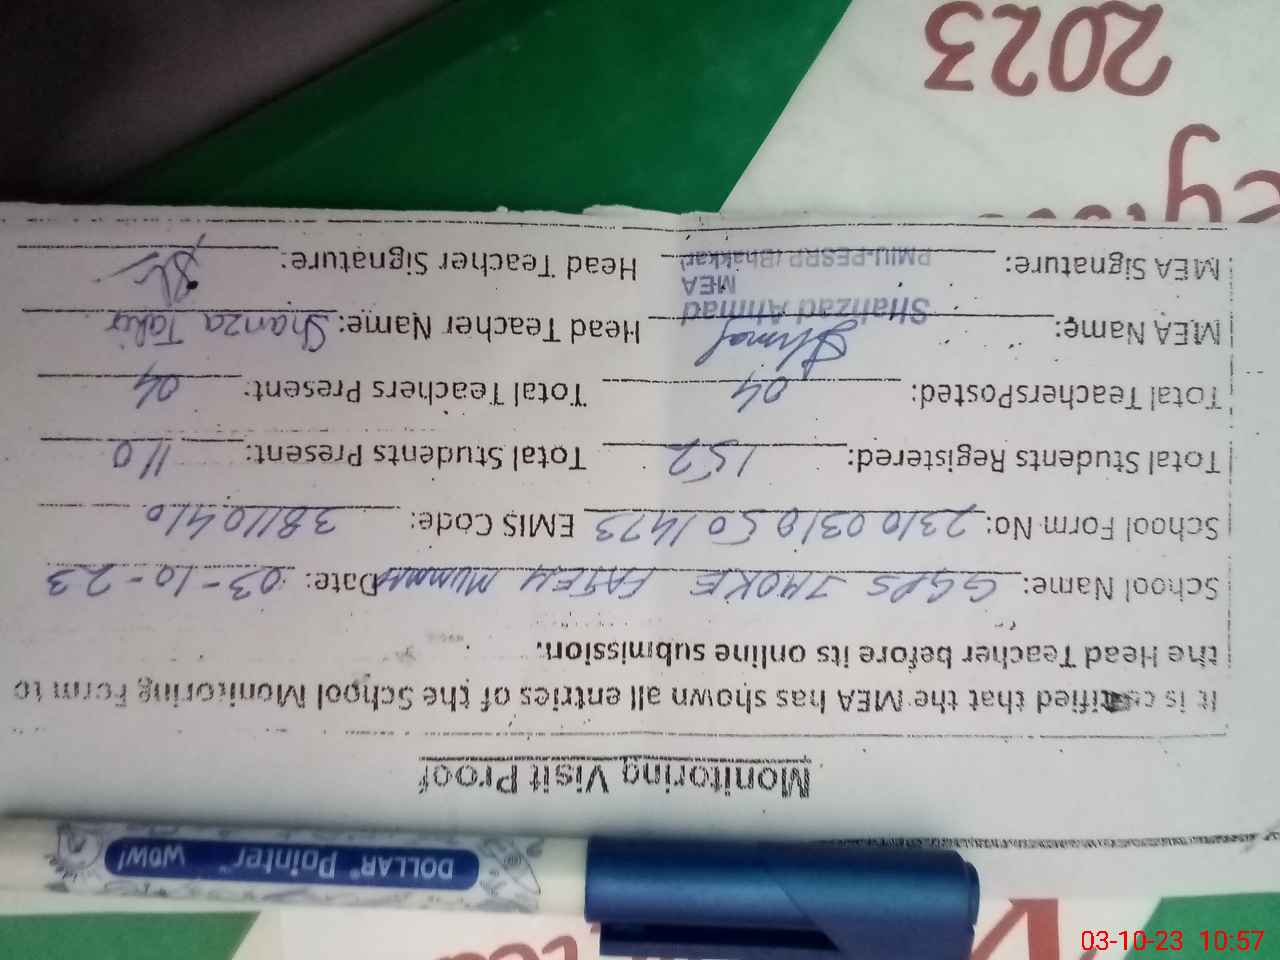 Monitoring Visit Proof
It is certified that the MEA has shown all entries of the School Monitoring Form to
the Head Teacher before its online submission.
School Name: GGPS JHOKE FATEH MUMMAD Date: 03-10-23
School Form No: 2310 0310 501473 EMIS Code: 38110410
Total Students Registered: 152 Total Students Present: 110
Total TeachersPosted: 04 Total Teachers Present: 04
MEA Name: Shahzad Ahmad Head Teacher Name: Shanza Tahir
MEA
MEA Signature: PMIU-PESRP (Bhakkar) Head Teacher Signature:
DOLLAR® Pointer™ WOW!
2023
03-10-23 10:57